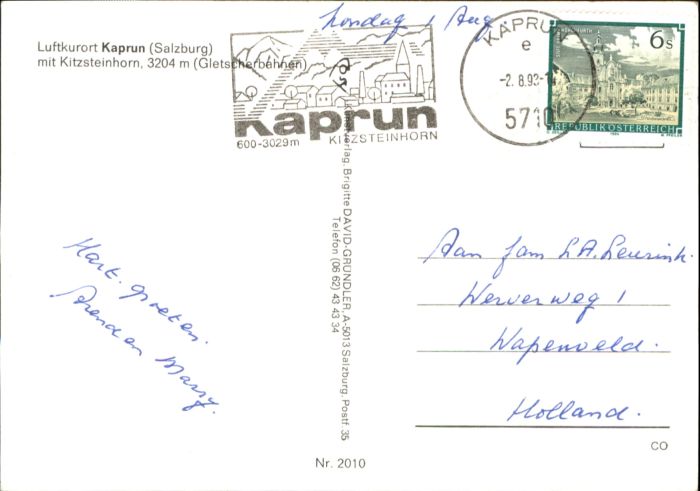 Zondag 1 Aug
Luftkurort Kaprun (Salzburg)
mit Kitzsteinhorn, 3204 m (Gletscherbahnen)
Kaprun
600-3029m KITZSTEINHORN
KAPRUN
e
-2.8.93-
5710
6s
REPUBLIK ÖSTERREICH
Verlag Brigitte DAVID-GRUNDLER, A-5013 Salzburg, Postf. 35
Telefon (06 62) 43 43 34
Hart. groeten.
Arend en Marry.
Aan fam L.A. Leurink.
Werverweg 1
Wapenveld.
Holland.
CO
Nr. 2010